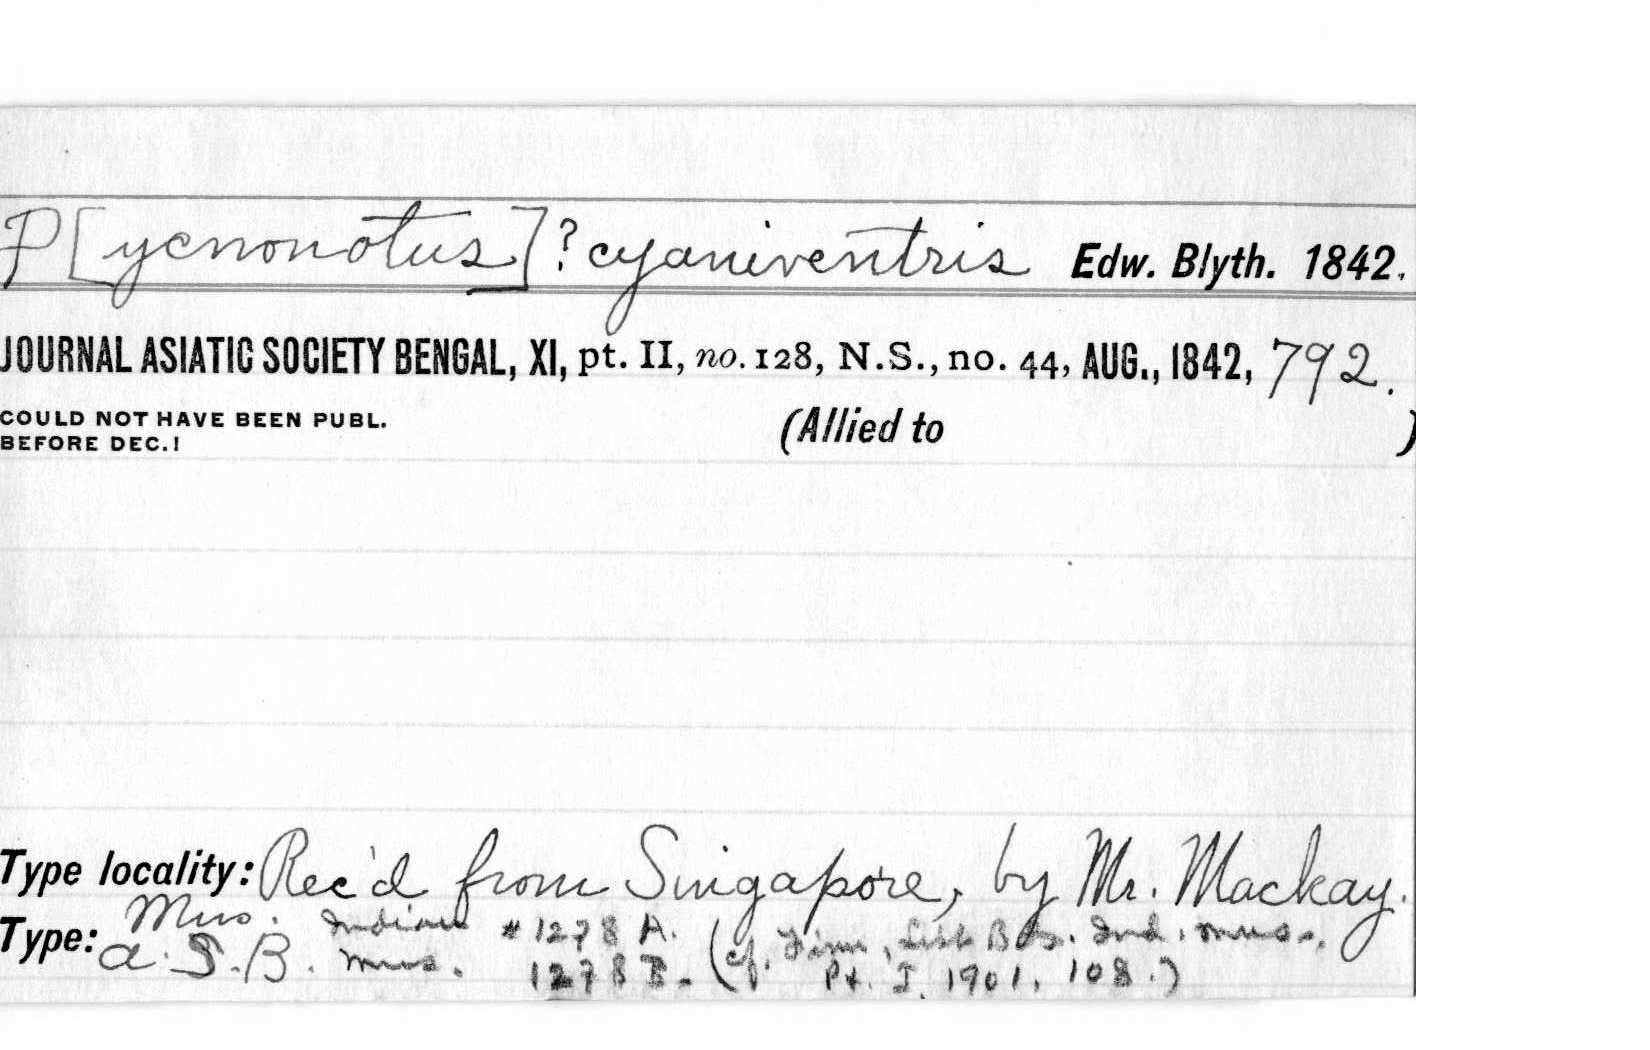 P[ycnonotus]? cyaniventris Edw. Blyth. 1842.
JOURNAL ASIATIC SOCIETY BENGAL, XI, pt. II, no. 128, N.S., no. 44, AUG., 1842, 792.
COULD NOT HAVE BEEN PUBL.
BEFORE DEC.!
(Allied to )
Type locality: Rec'd from Singapore, by Mr. Mackay.
Type: Mus. A.S.B. Indian Mus. #1278 A. (cf. Finn, List Bds. Ind. Mus.,
1278 B. Pt. I, 1901, 108.)